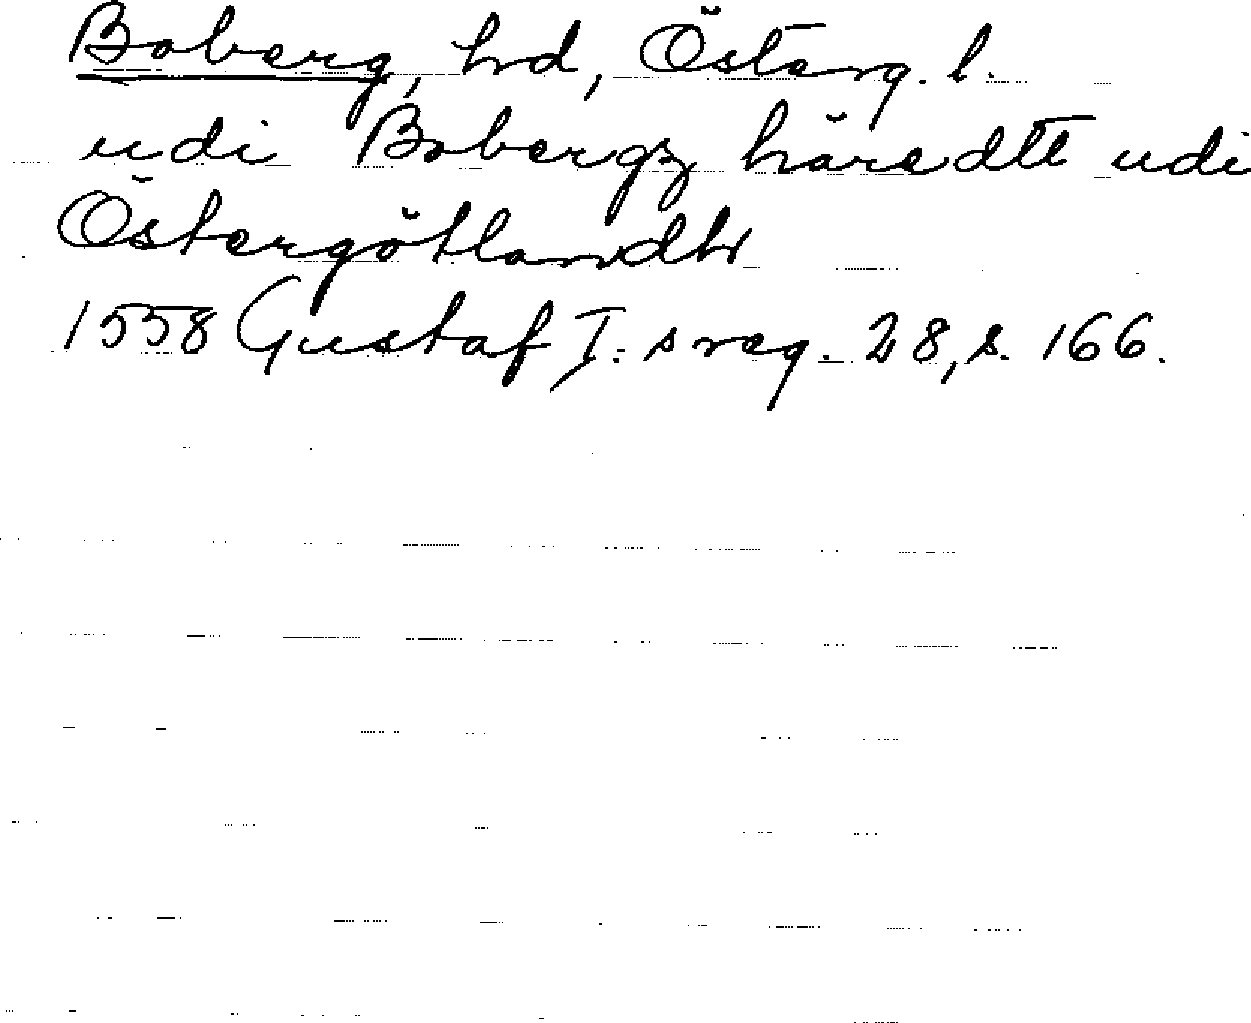 Boberg, hd, Österg. l.
udi Bobergz häredtt udi
Östergötlandh
1558 Gustaf I:s reg. 28, s. 166.